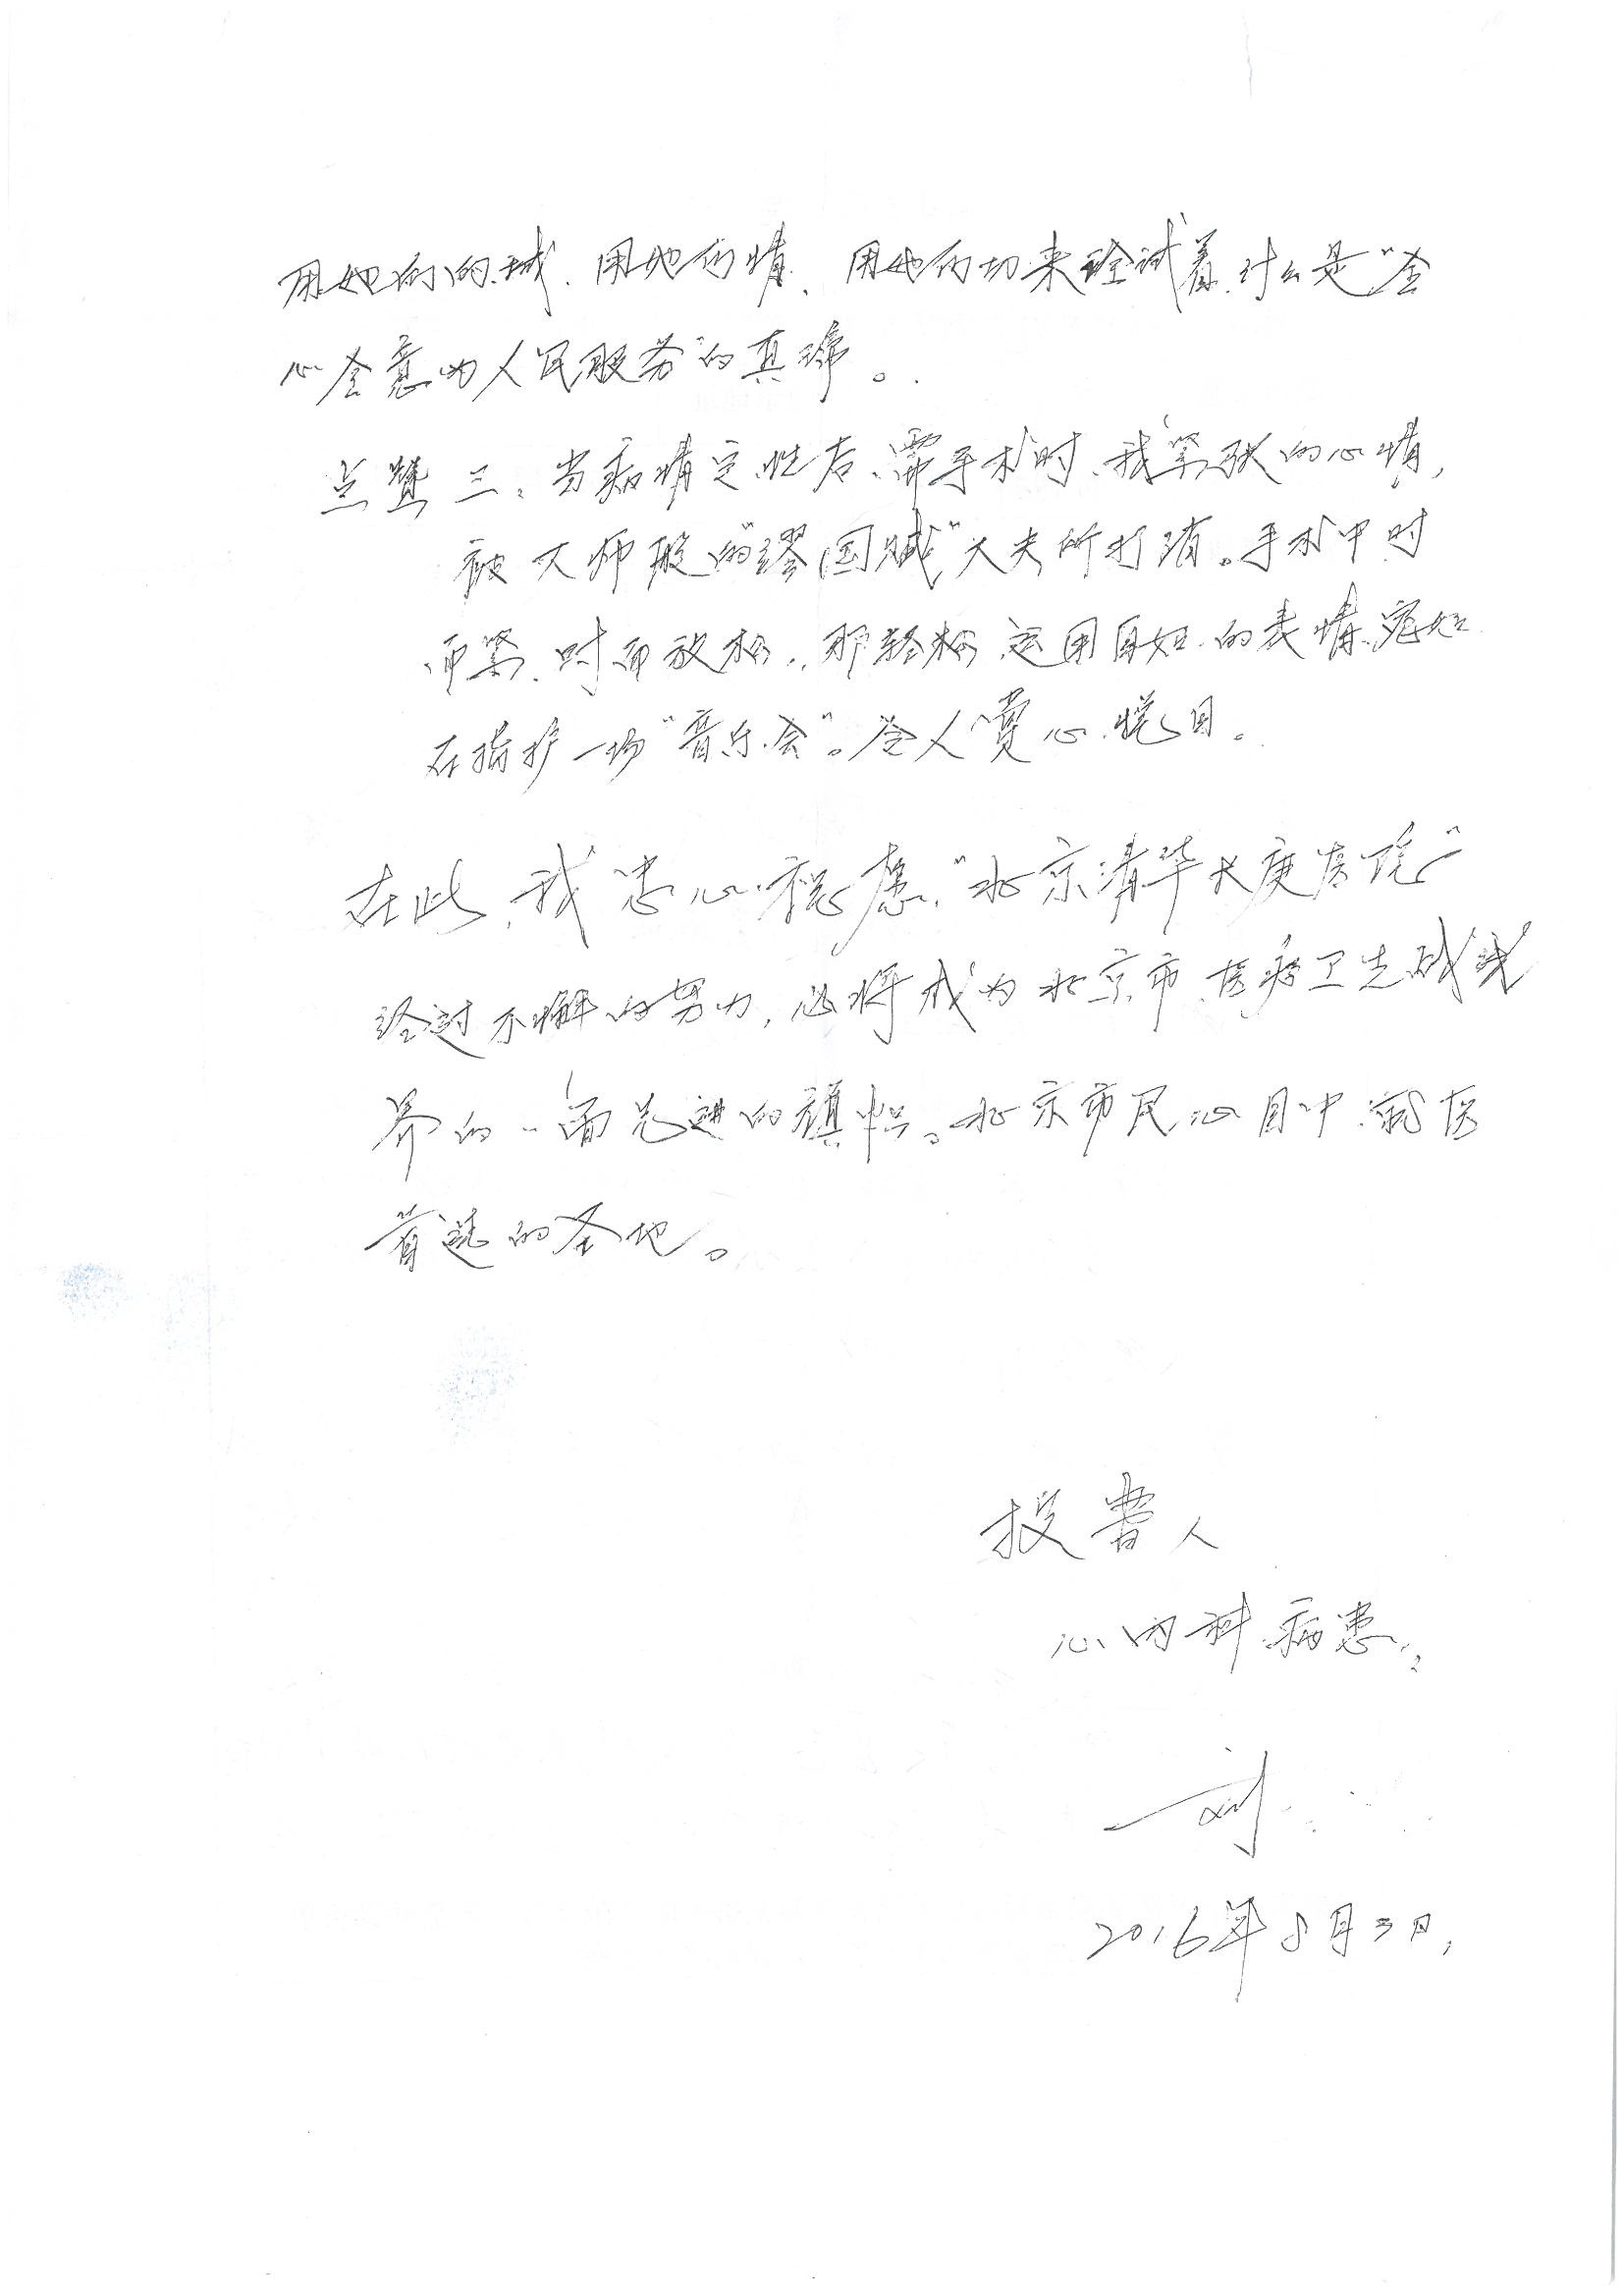 用她们的诚、用她们情、用她们切来诠试着、什么是“全
心全意为人民服务”的真谛。
点赞三、当病情定性后、需手术时、我紧张的心情，
被大师般的“缪国斌”大夫所打消。手术中时
而紧、时而放松，那轻松、运用自如的表情、宛如
在指挥一场“音乐会”。令人赏心悦目。
在此，我忠心祝愿，“北京清华长庚医院”
经过不懈的努力，必将成为北京市、医疗卫生战线
界的一面先进的旗帜。北京市民心目中、就医
首选的圣地。
投书人
心内科病患，
刘
2016年8月3日，